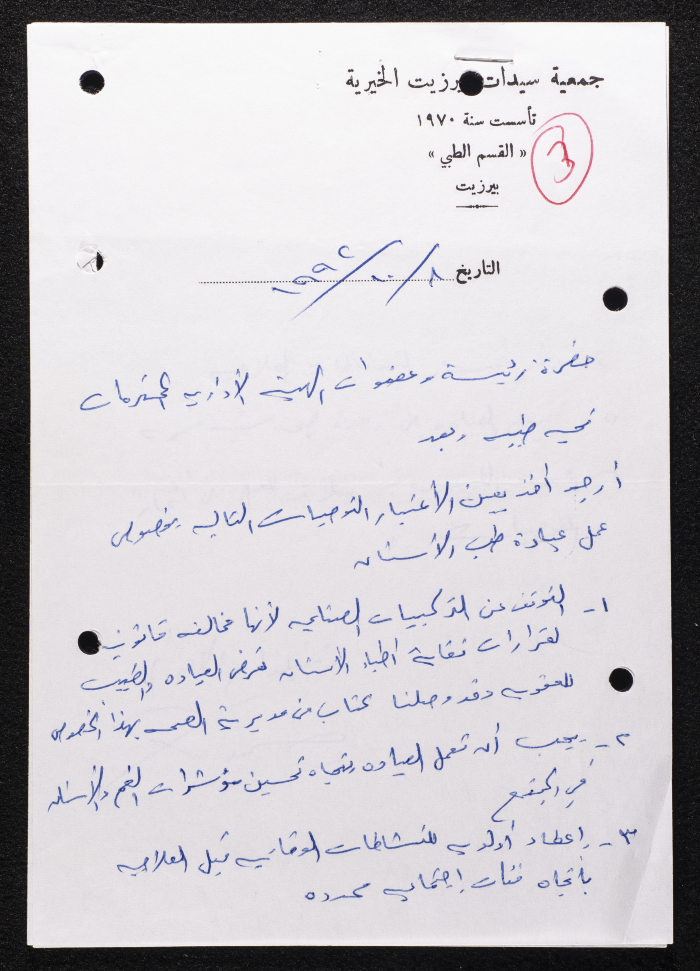 جمعية سيدات بيرزيت الخيرية
تأسست سنة ١٩٧٠
« القسم الطبي »
3
بيرزيت
التاريخ ٨/١٠/١٩٩٢
حضرة رئيسة وعضوات الهيئة الأدارية المحترمات
تحيه طيبه وبعد
أرجو أخذ بعين الأعتبار التوصيات التاليه بخصوص
عمل عيادة طب الأسنان
١- التوقف عن التركيبات الصناعيه لأنها مخالفه قانونيه
لقرارات نقابة أطباء الأسنان تعرض العياده والطبيب
للعقوبه وقد وصلنا كتاب من مديرية الصحه بهذا الخصوص
٢- يجب أن تعمل العياده بتجاه تحسين مؤشرات الفم والأسنان
في المجتمع
٣- إعطاء أولويه للنشاطات الوقائيه قبل العلاجيه
بأتجاه فئات إجتماعيه محدده